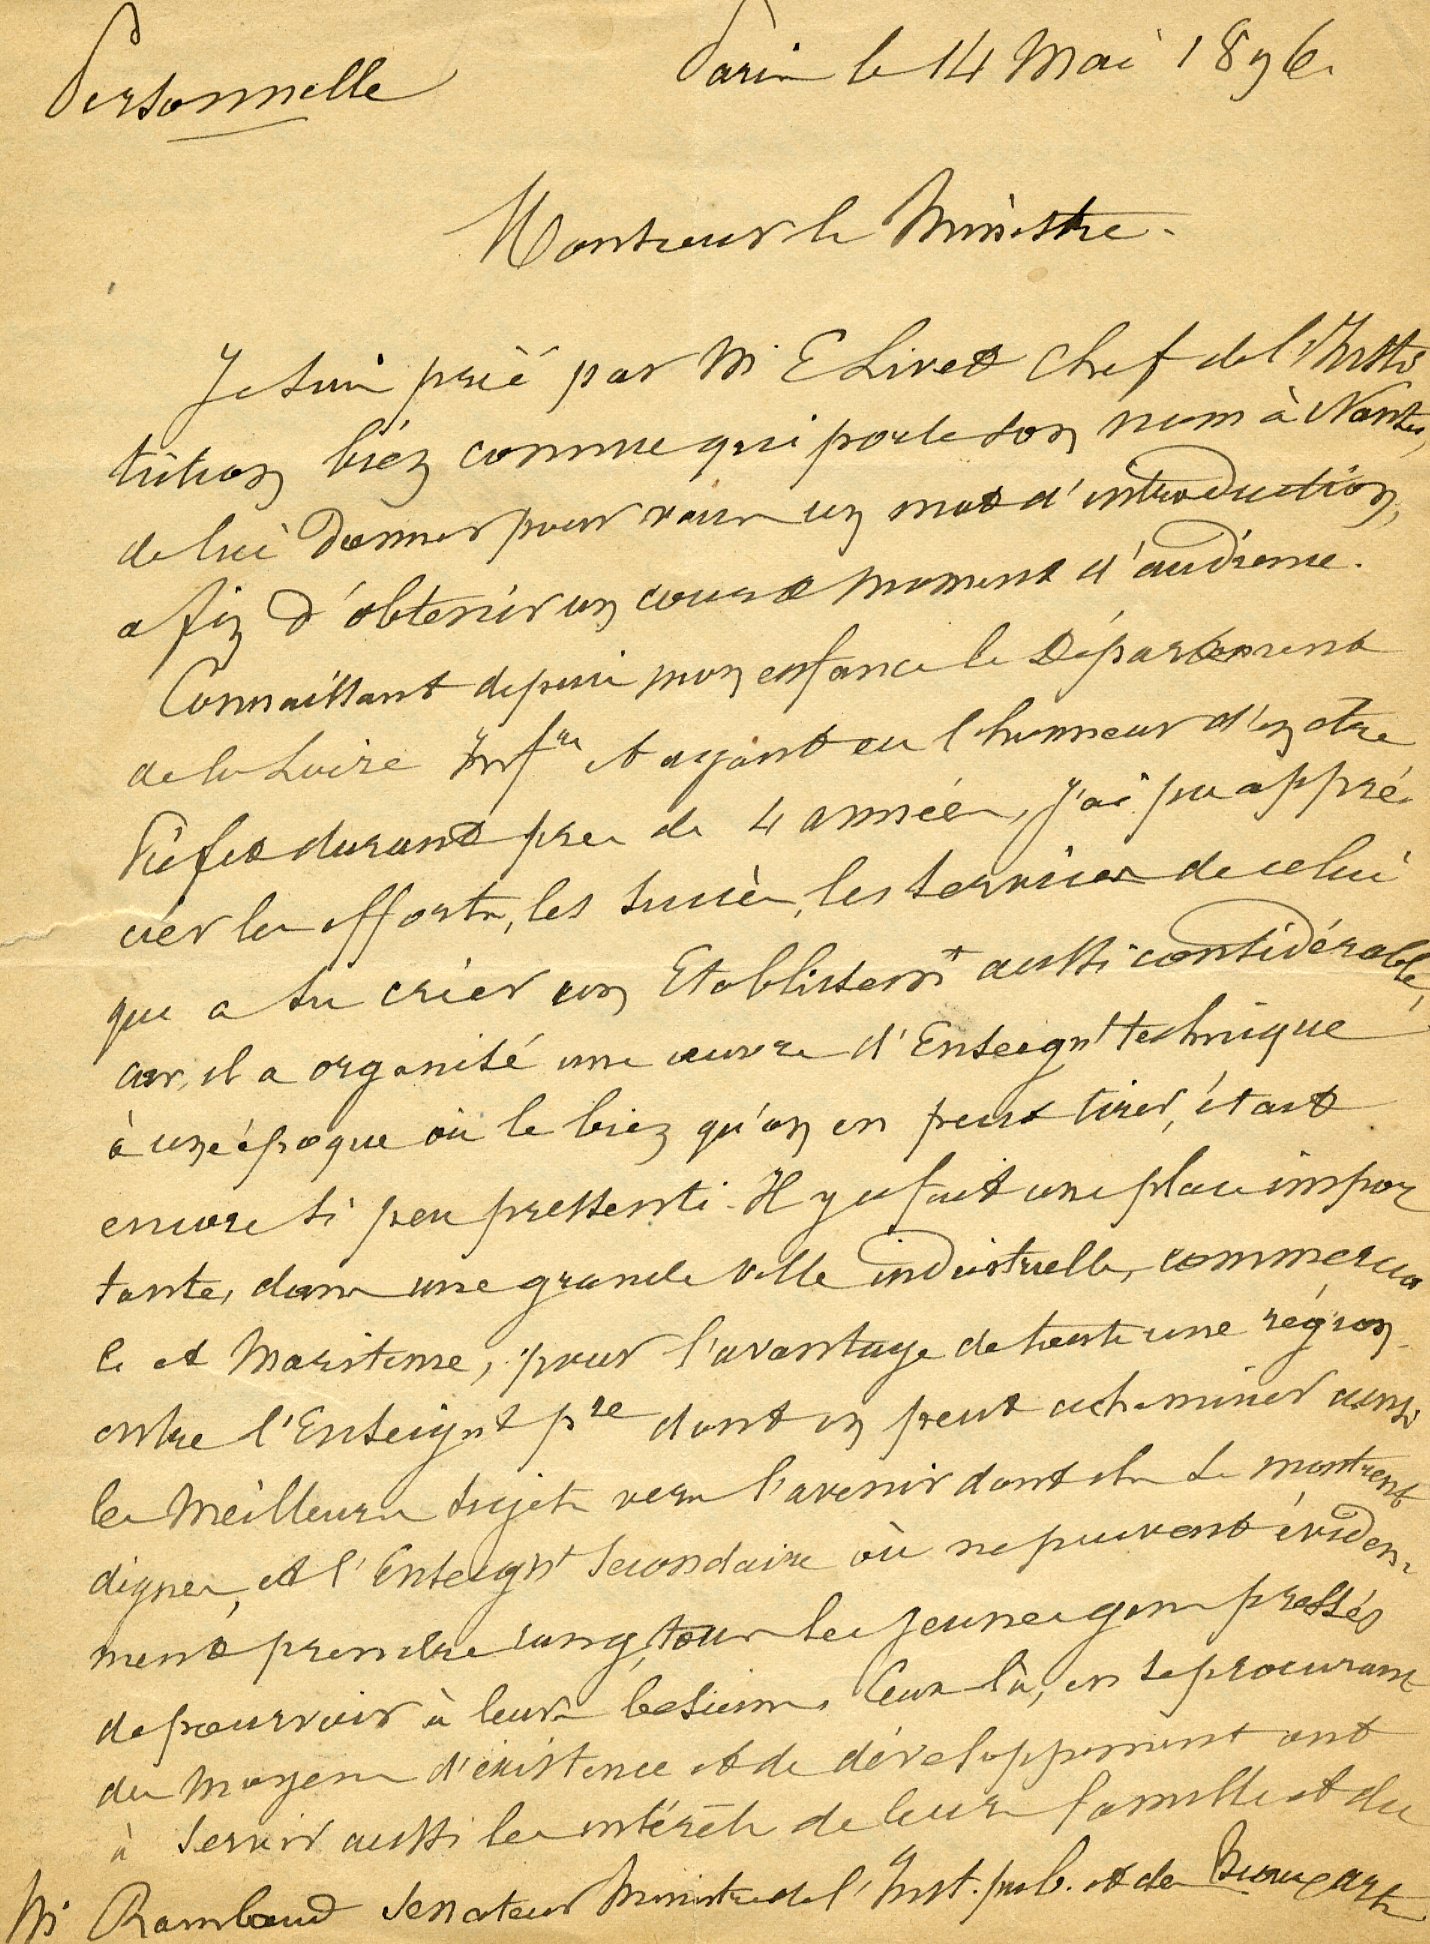 Personnelle
Paris le 14 Mai 1896.
Monsieur le Ministre.
Je suis prié par Mr E Livet Chef de l'Insti
tution bien connue qui porte son nom à Nantes,
de lui donner pour vous un mot d'introduction,
afin d'obtenir un court moment d'audience.
Connaissant depuis mon enfance le Département
de la Loire Infre et ayant eu l'honneur d'en être
Préfet durant près de 4 années, j'ai pu appré
cier les efforts, les succès, les services de celui
qui a su créer un Etablissemt aussi considérable,
car, il a organisé une œuvre d'Enseignt technique
à une époque où le bien qu'on en peut tirer, était
encore si peu pressenti. Il y a fait une place impor
tante, dans une grande ville industrielle, commercia
le et Maritime, pour l'avantage de toute une région
entre l'Enseignt pre dont on peut acheminer ainsi
les Meilleurs sujets vers l'avenir dont ils se montrent
dignes, et l'Enseignt Secondaire où ne peuvent évidem
ment prendre rang, tous les jeunes gens pressés
de pourvoir à leurs besoins. Ceux-là, en se procurant
des moyens d'existence et de développement ont
à servir aussi les intérêts de leurs famille et du
Mr Rambaud Senateur Ministre de l'Inst. pub. et des Beaux arts